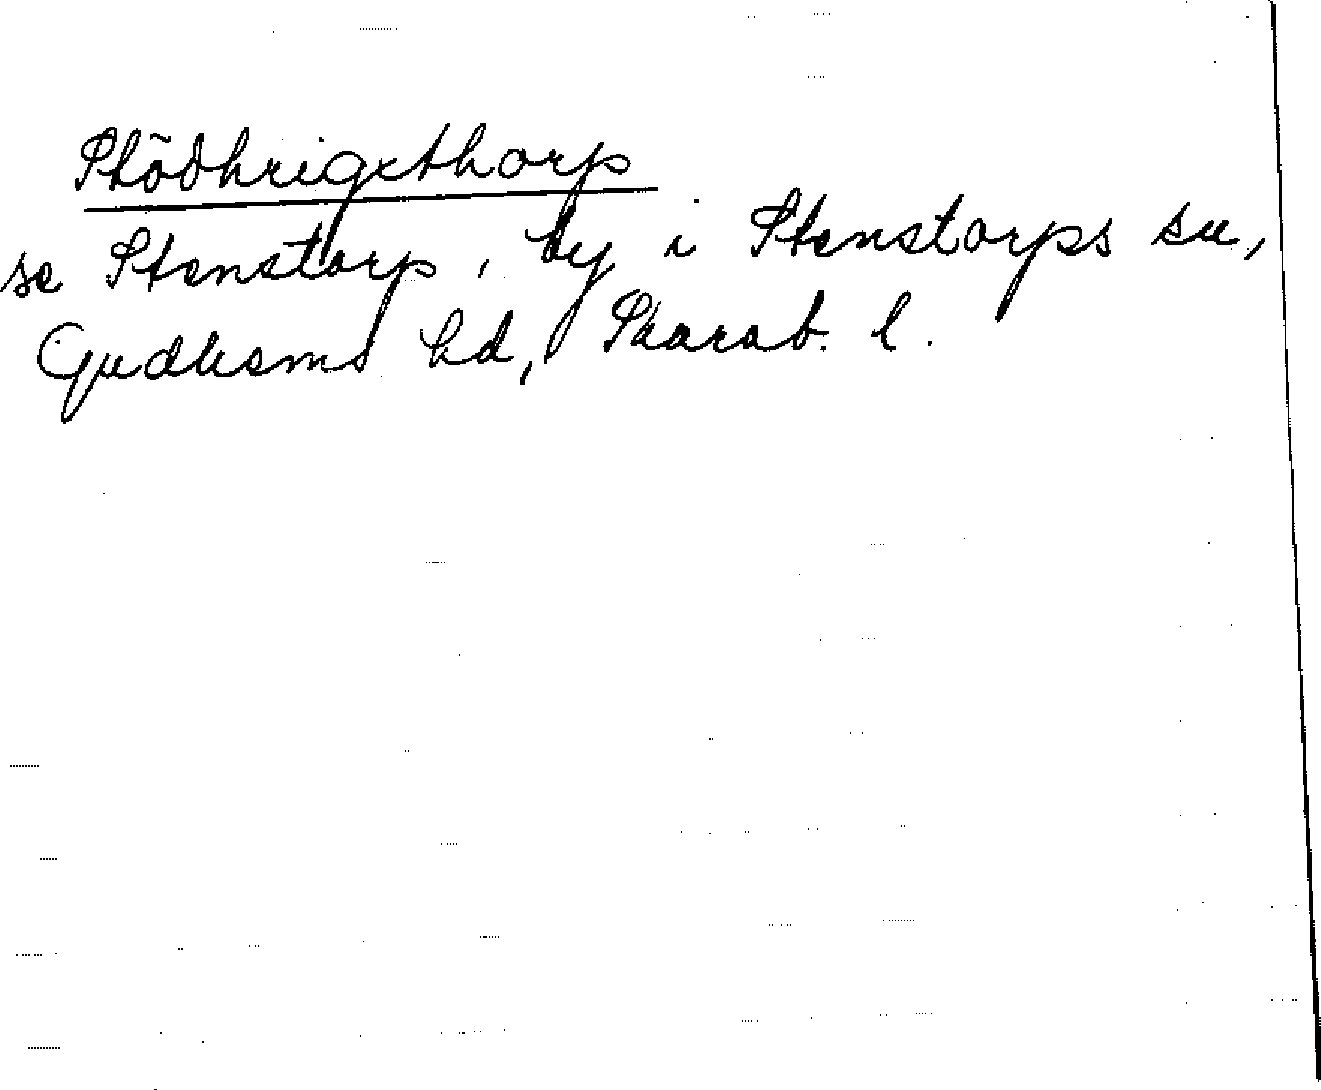 Stödhrigxthorp
se Stenstorp, by i Stenstorps sn,
Gudhems hd, Skarab. l.